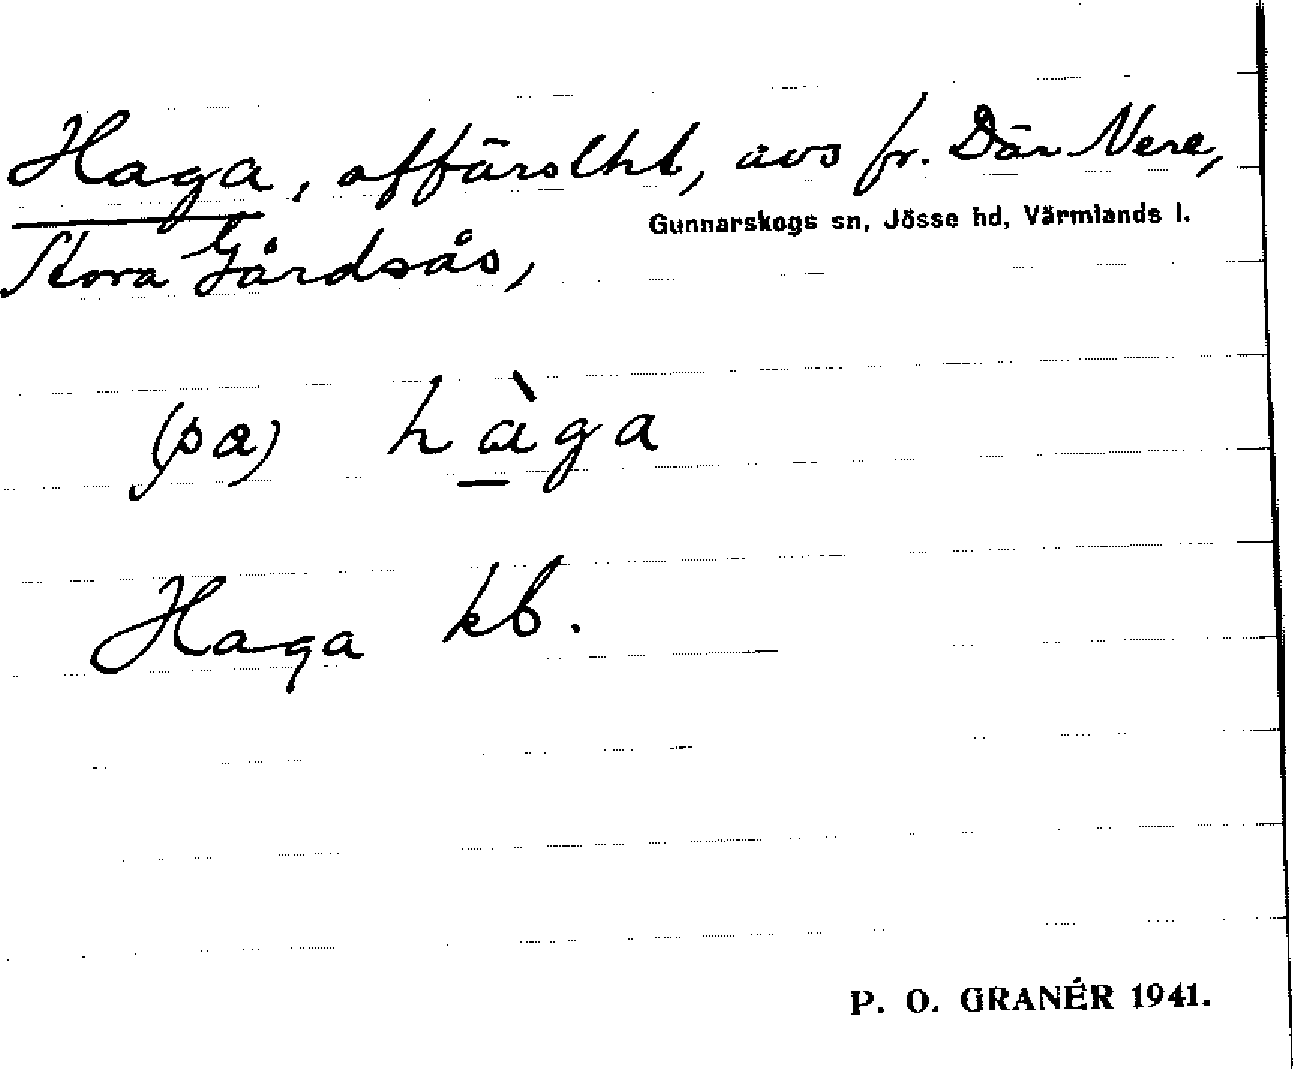 Haga, affärslht, avs fr. Där Nere,
Gunnarskogs sn, Jösse hd, Värmlands l.
Stora Gårdsås,
(på) hàga
Haga kb.
P. O. GRANÉR 1941.